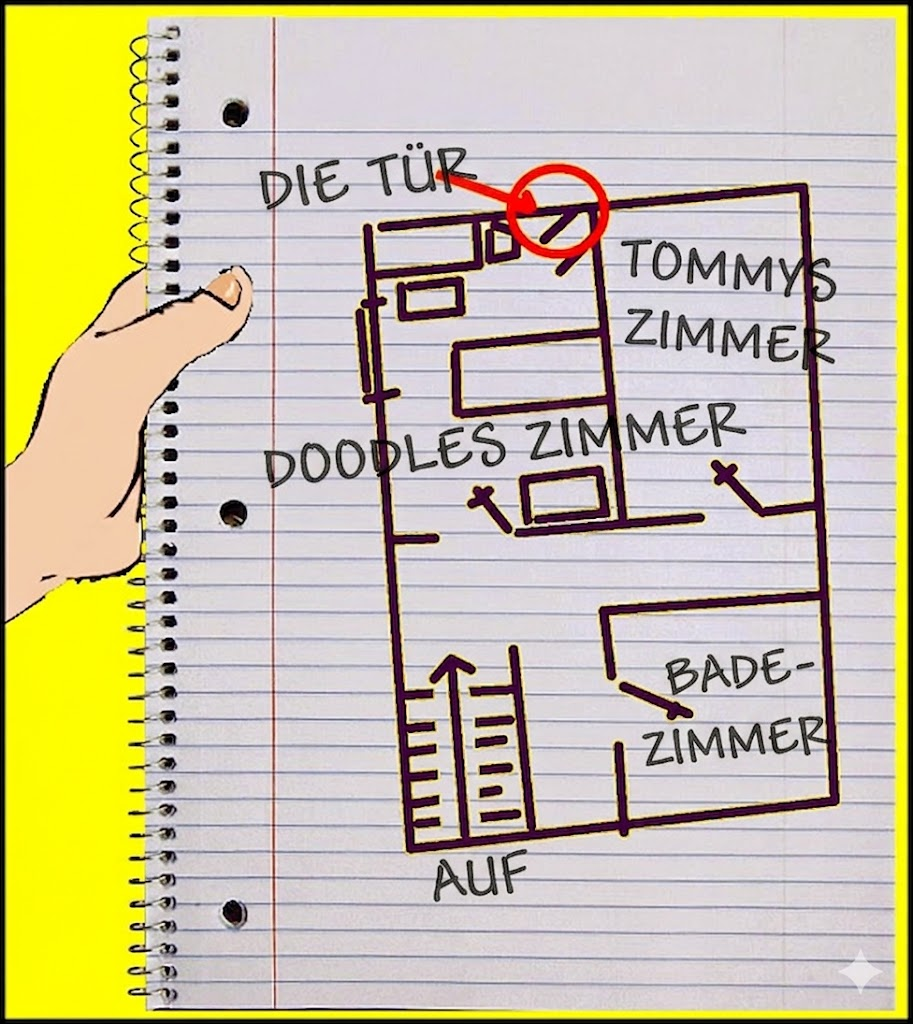 DIE TÜR
TOMMYS
ZIMMER
DOODLES ZIMMER
BADE-
ZIMMER
AUF